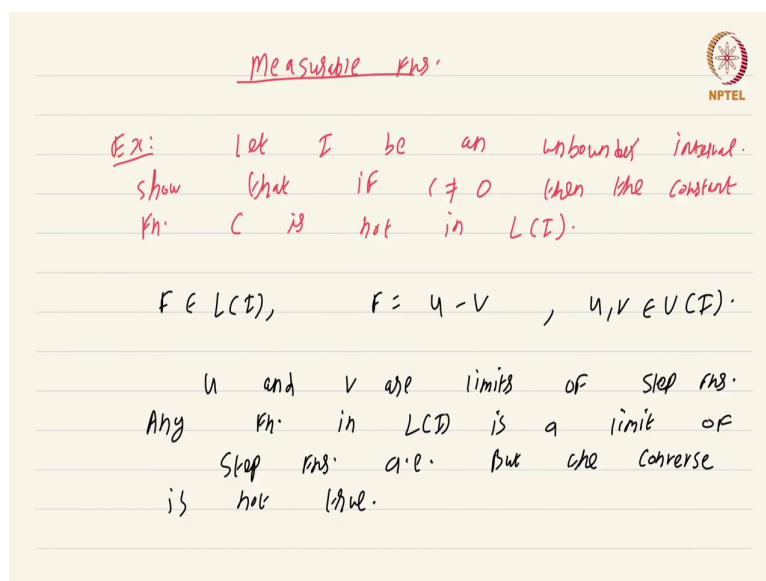 Measurable Fns.
NPTEL
Ex: Let I be an unbounded interval.
show that if C ≠ 0 then the constant
Fn. C is not in L(I).
F ∈ L(I), F = u - v , u, v ∈ U(I).
u and v are limits of step Fns.
Any Fn. in L(I) is a limit of
step Fns. a.e. But the converse
is not true.